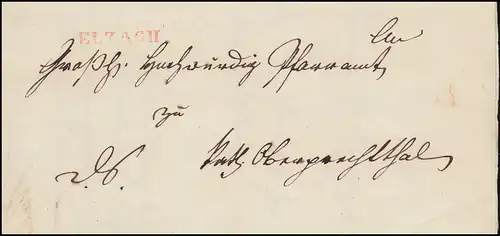 ELZACH
An
Großh. Hochwürdig Pfarramt
zu
D.S. kath. Oberprechthal